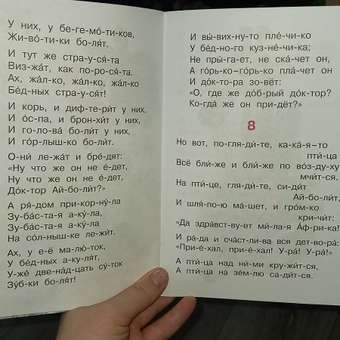 У них, у бе-ге-мо́-ти-ков,
Жи-во́-ти-ки бо-ля́т.
И тут же стра-у-ся́-та
Виз-жа́т, как по-ро-ся́-та.
Ах, жа́л-ко, жа́л-ко, жа́л-ко
Бе́д-ных стра́-у-сят!
И корь, и диф-те-ри́т у них,
И о́с-па, и брон-хи́т у них,
И го-ло-ва́ бо-ли́т у них,
И го́р-лыш-ко бо-ли́т.
О-ни́ ле-жа́т и бре́-дят:
«Ну что же он не е́-дет,
Ну что же он не е́-дет,
До́к-тор Ай-бо-ли́т?»
А ря́-дом при-кор-ну́-ла
Зу-ба́с-та-я а-ку́-ла,
Зу-ба́с-та-я а-ку́-ла
На со́л-ныш-ке ле-жи́т.
Ах, у е-ё ма-лю́-ток,
У бе́д-ных а-ку-ля́т,
У-же́ две-на́д-цать су́-ток
Зу́б-ки бо-ля́т!
И вы́-вих-ну-то пле́-чи-ко
У бе́д-но-го куз-не́-чи-ка;
Не пры́-га-ет, не ска́-чет он,
А го́рь-ко-го́рь-ко пла́-чет он
И до́к-то-ра зо-вёт:
«О, где же до́б-рый до́к-тор?
Ко-гда́ же он при-дёт?»
8
Но вот, по-гля-ди́-те, ка-ка́-я-то
пти́-ца
Всё бли́-же и бли́-же по во́з-ду-ху
мчи́т-ся.
На пти́-це, гля-ди́-те, си-ди́т
Ай-бо-ли́т,
И шля́-по-ю ма́-шет, и гро́м-ко
кри-чи́т:
«Да здра́вст-ву-ет ми́-ла-я А́ф-ри-ка!»
И ра́-да и сча́ст-ли-ва вся дет-во-ра́:
«При-е́-хал, при-е́-хал! У-ра́! У-ра́!»
А пти́-ца над ни́-ми кру́-жи́т-ся,
А пти́-ца на зе́м-лю са-ди́т-ся.